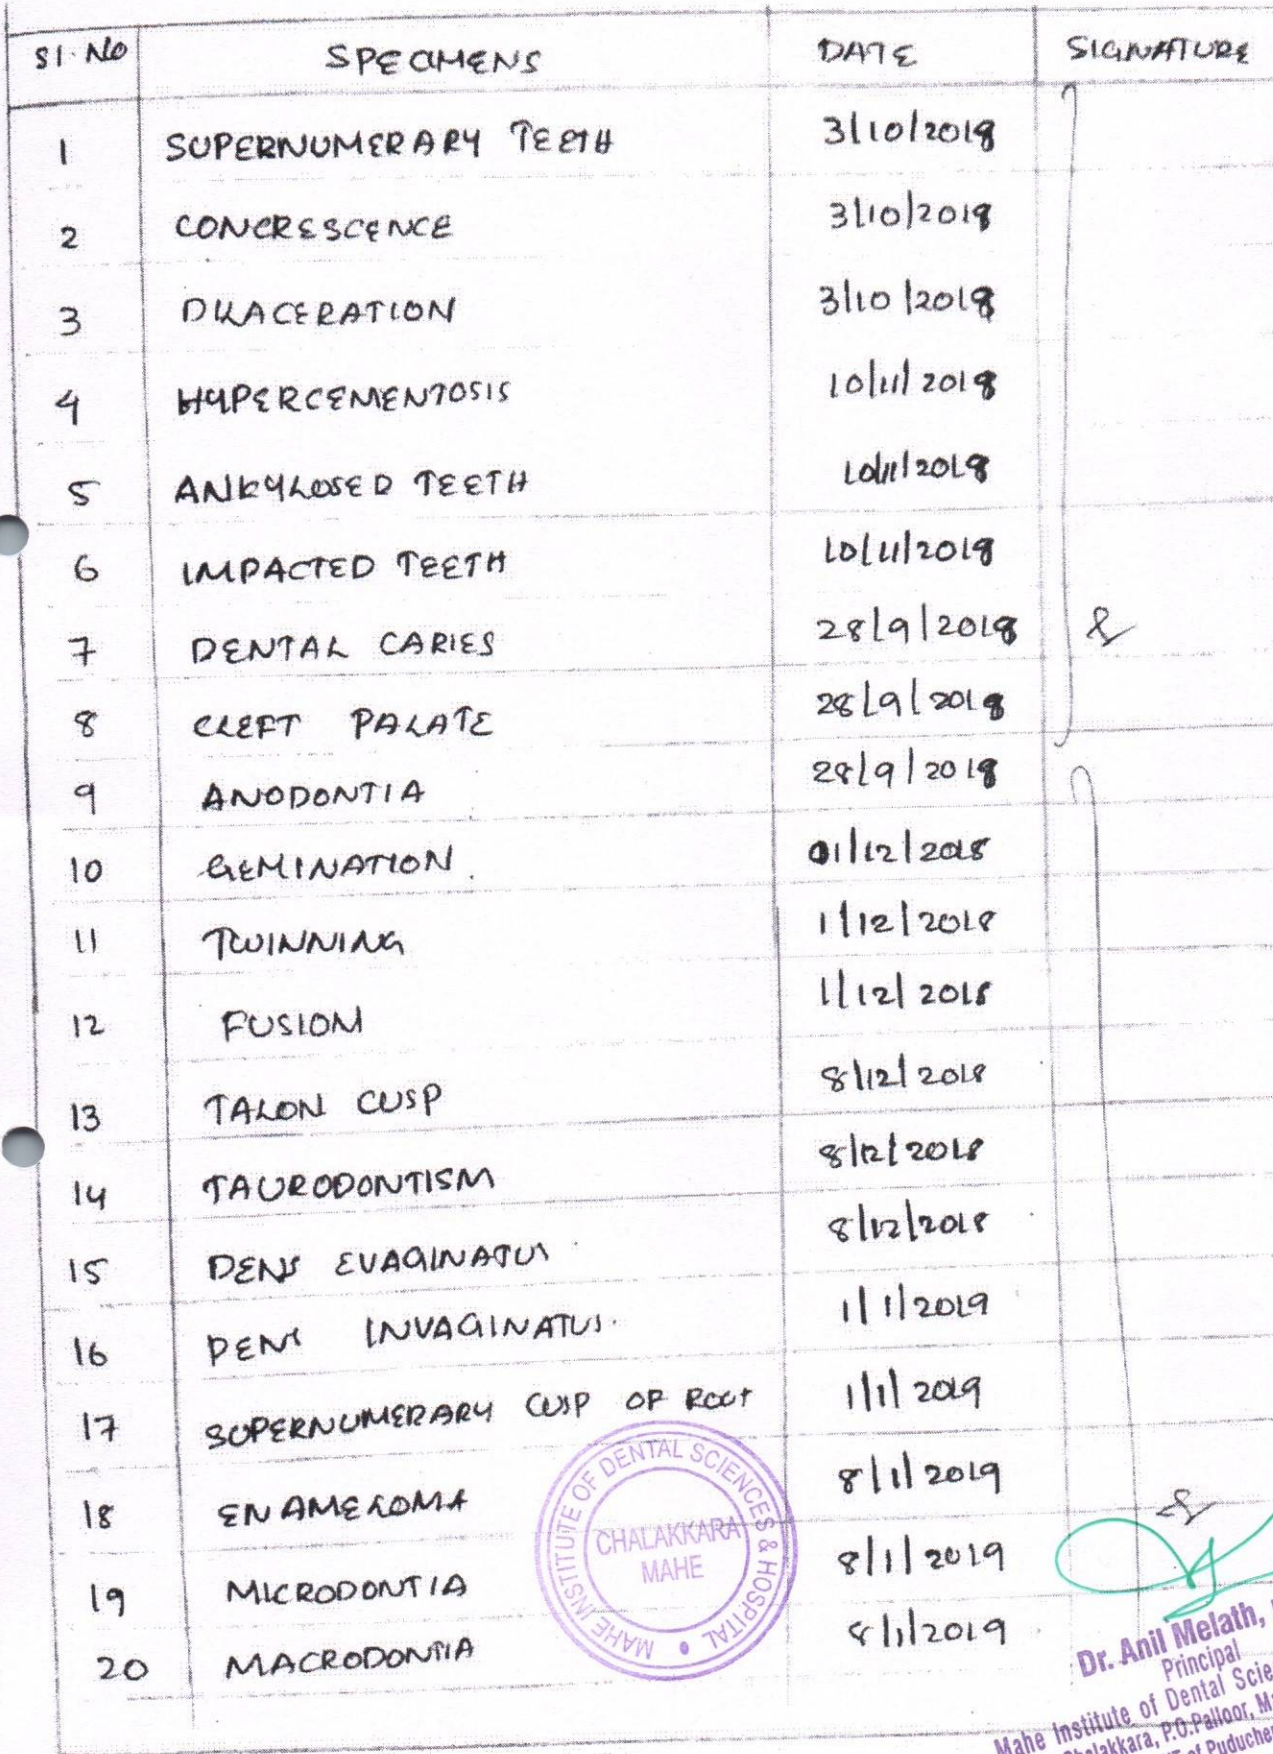 Sl. No SPECIMENS DATE SIGNATURE
1 SUPERNUMERARY TEETH 3/10/2018
2 CONCRESCENCE 3/10/2018
3 DILACERATION 3/10/2018
4 HYPERCEMENTOSIS 10/11/2018
5 ANKYLOSED TEETH 10/11/2018
6 IMPACTED TEETH 10/11/2018
7 DENTAL CARIES 28/9/2018
8 CLEFT PALATE 28/9/2018
9 ANODONTIA 28/9/2018
10 GEMINATION 01/12/2018
11 TWINNING 1/12/2018
12 FUSION 1/12/2018
13 TALON CUSP 8/12/2018
14 TAURODONTISM 8/12/2018
15 DENS EVAGINATUS 8/12/2018
16 DENS INVAGINATUS. 1/1/2019
17 SUPERNUMERARY CUSP OF ROOT 1/1/2019
18 ENAMELOMA 8/1/2019
19 MICRODONTIA 8/1/2019
20 MACRODONTIA 8/1/2019
MAHE INSTITUTE OF DENTAL SCIENCES & HOSPITAL
CHALAKKARA
MAHE
Dr. Anil Melath,
Principal
Mahe Institute of Dental Scie
Chalakkara, P.O.Palloor, Ma
of Puducher